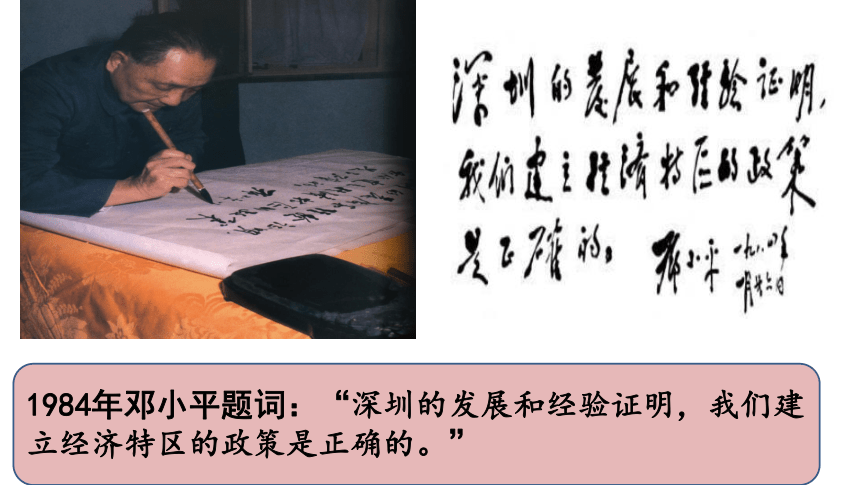 深圳的发展和经验证明,
我们建立经济特区的政策
是正确的。 邓小平 一九八四年
一月廿六日
1984年邓小平题词：“深圳的发展和经验证明，我们建
立经济特区的政策是正确的。”